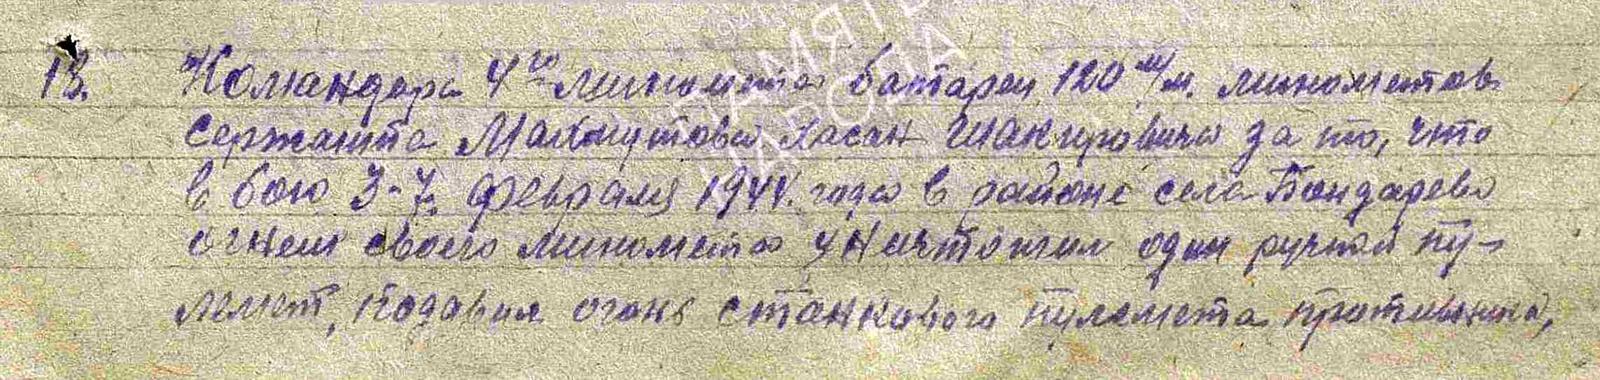 13. Командира 4го миномета батареи 120 м/м. минометов
Сержанта Махмутова Хасан Шакировича за то, что
в бою 3-7. февраля 1944. года в районе села Бондарево
огнем своего миномета уничтожил один ручной пу-
лемет, подавил огонь станкового пулемета противника,
ПАМЯТЬ
НАРОДА